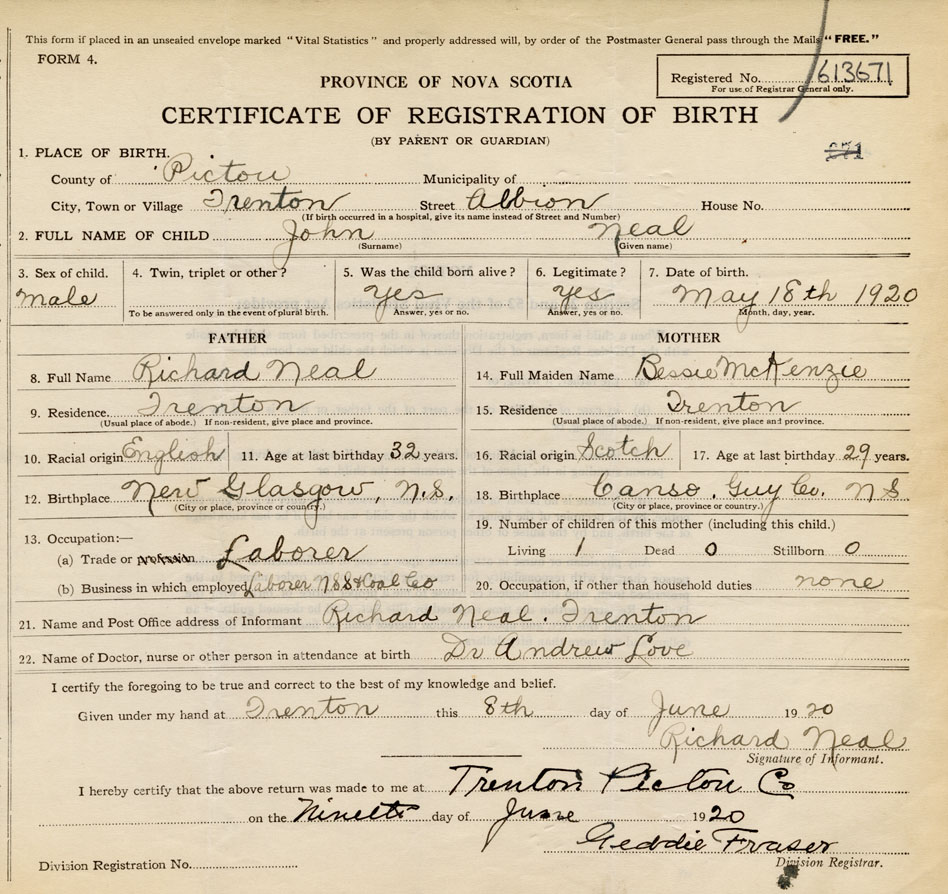 This form if placed in an unsealed envelope marked "Vital Statistics" and properly addressed will, by order of the Postmaster General pass through the Mails "FREE."
FORM 4.
PROVINCE OF NOVA SCOTIA
Registered No. 613671
For use of Registrar General only.
CERTIFICATE OF REGISTRATION OF BIRTH
(BY PARENT OR GUARDIAN)
1. PLACE OF BIRTH.
271
County of Pictou Municipality of
City, Town or Village Trenton Street Albion House No.
(If birth occurred in a hospital, give its name instead of Street and Number)
2. FULL NAME OF CHILD John Neal
(Surname) (Given name)
3. Sex of child. 4. Twin, triplet or other? 5. Was the child born alive? 6. Legitimate? 7. Date of birth.
Male Yes Yes May 18th 1920
To be answered only in the event of plural birth. Answer, yes or no. Answer, yes or no. Month, day, year.
FATHER MOTHER
8. Full Name Richard Neal 14. Full Maiden Name Bessie McKenzie
9. Residence. Trenton 15. Residence Trenton
(Usual place of abode.) If non-resident, give place and province. (Usual place of abode.) If non-resident, give place and province.
10. Racial origin English 11. Age at last birthday 32 years. 16. Racial origin Scotch 17. Age at last birthday 29 years.
12. Birthplace New Glasgow, N.S. 18. Birthplace Canso. Guy Co. N S.
(City or place, province or country.) (City or place, province or country.)
19. Number of children of this mother (including this child.)
13. Occupation:—
(a) Trade or profession Laborer Living 1 Dead 0 Stillborn 0
(b) Business in which employed Laborer N.S.S & Coal Co 20. Occupation, if other than household duties none
21. Name and Post Office address of Informant Richard Neal. Trenton
22. Name of Doctor, nurse or other person in attendance at birth Dr Andrew Love
I certify the foregoing to be true and correct to the best of my knowledge and belief.
Given under my hand at Trenton this 8th day of June 1920
Richard Neal
Signature of Informant.
I hereby certify that the above return was made to me at Trenton Pictou Co
on the Nineth day of June 1920
Geddie Fraser
Division Registrar.
Division Registration No.